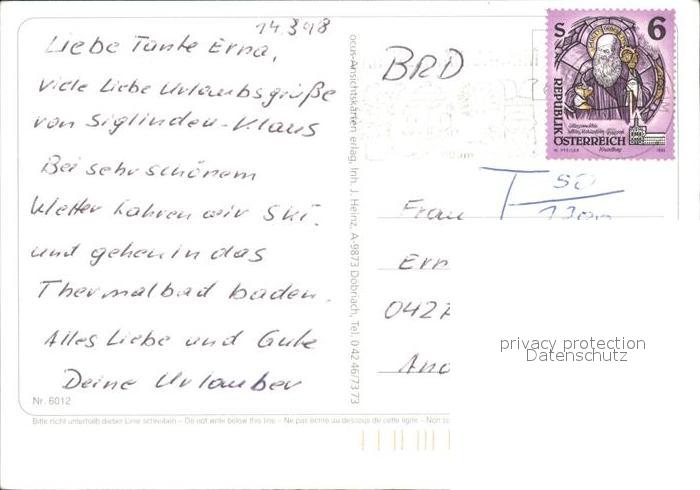 14.3.98
Liebe Tante Erna,
viele Liebe Urlaubsgrüße
von Siglinden-Klaus
Bei sehr schönem
Wetter fahren wir Ski.
und gehen in das
Thermalbad baden.
Alles Liebe und Gute
Deine Urlauber
Nr. 6012
Bitte nicht unterhalb dieser Linie schreiben – Do not write below this line – Ne pas écrire au dessous de cette ligne – Non sc
ocus-Ansichtskarten erlag, Inh. J. Heinz, A-9873 Döbriach, Tel. 0 42 46/73 73
BRD
S 6
REPUBLIK
ÖSTERREICH
T 50
Frau
Ern
0427
privacy protection
Datenschutz